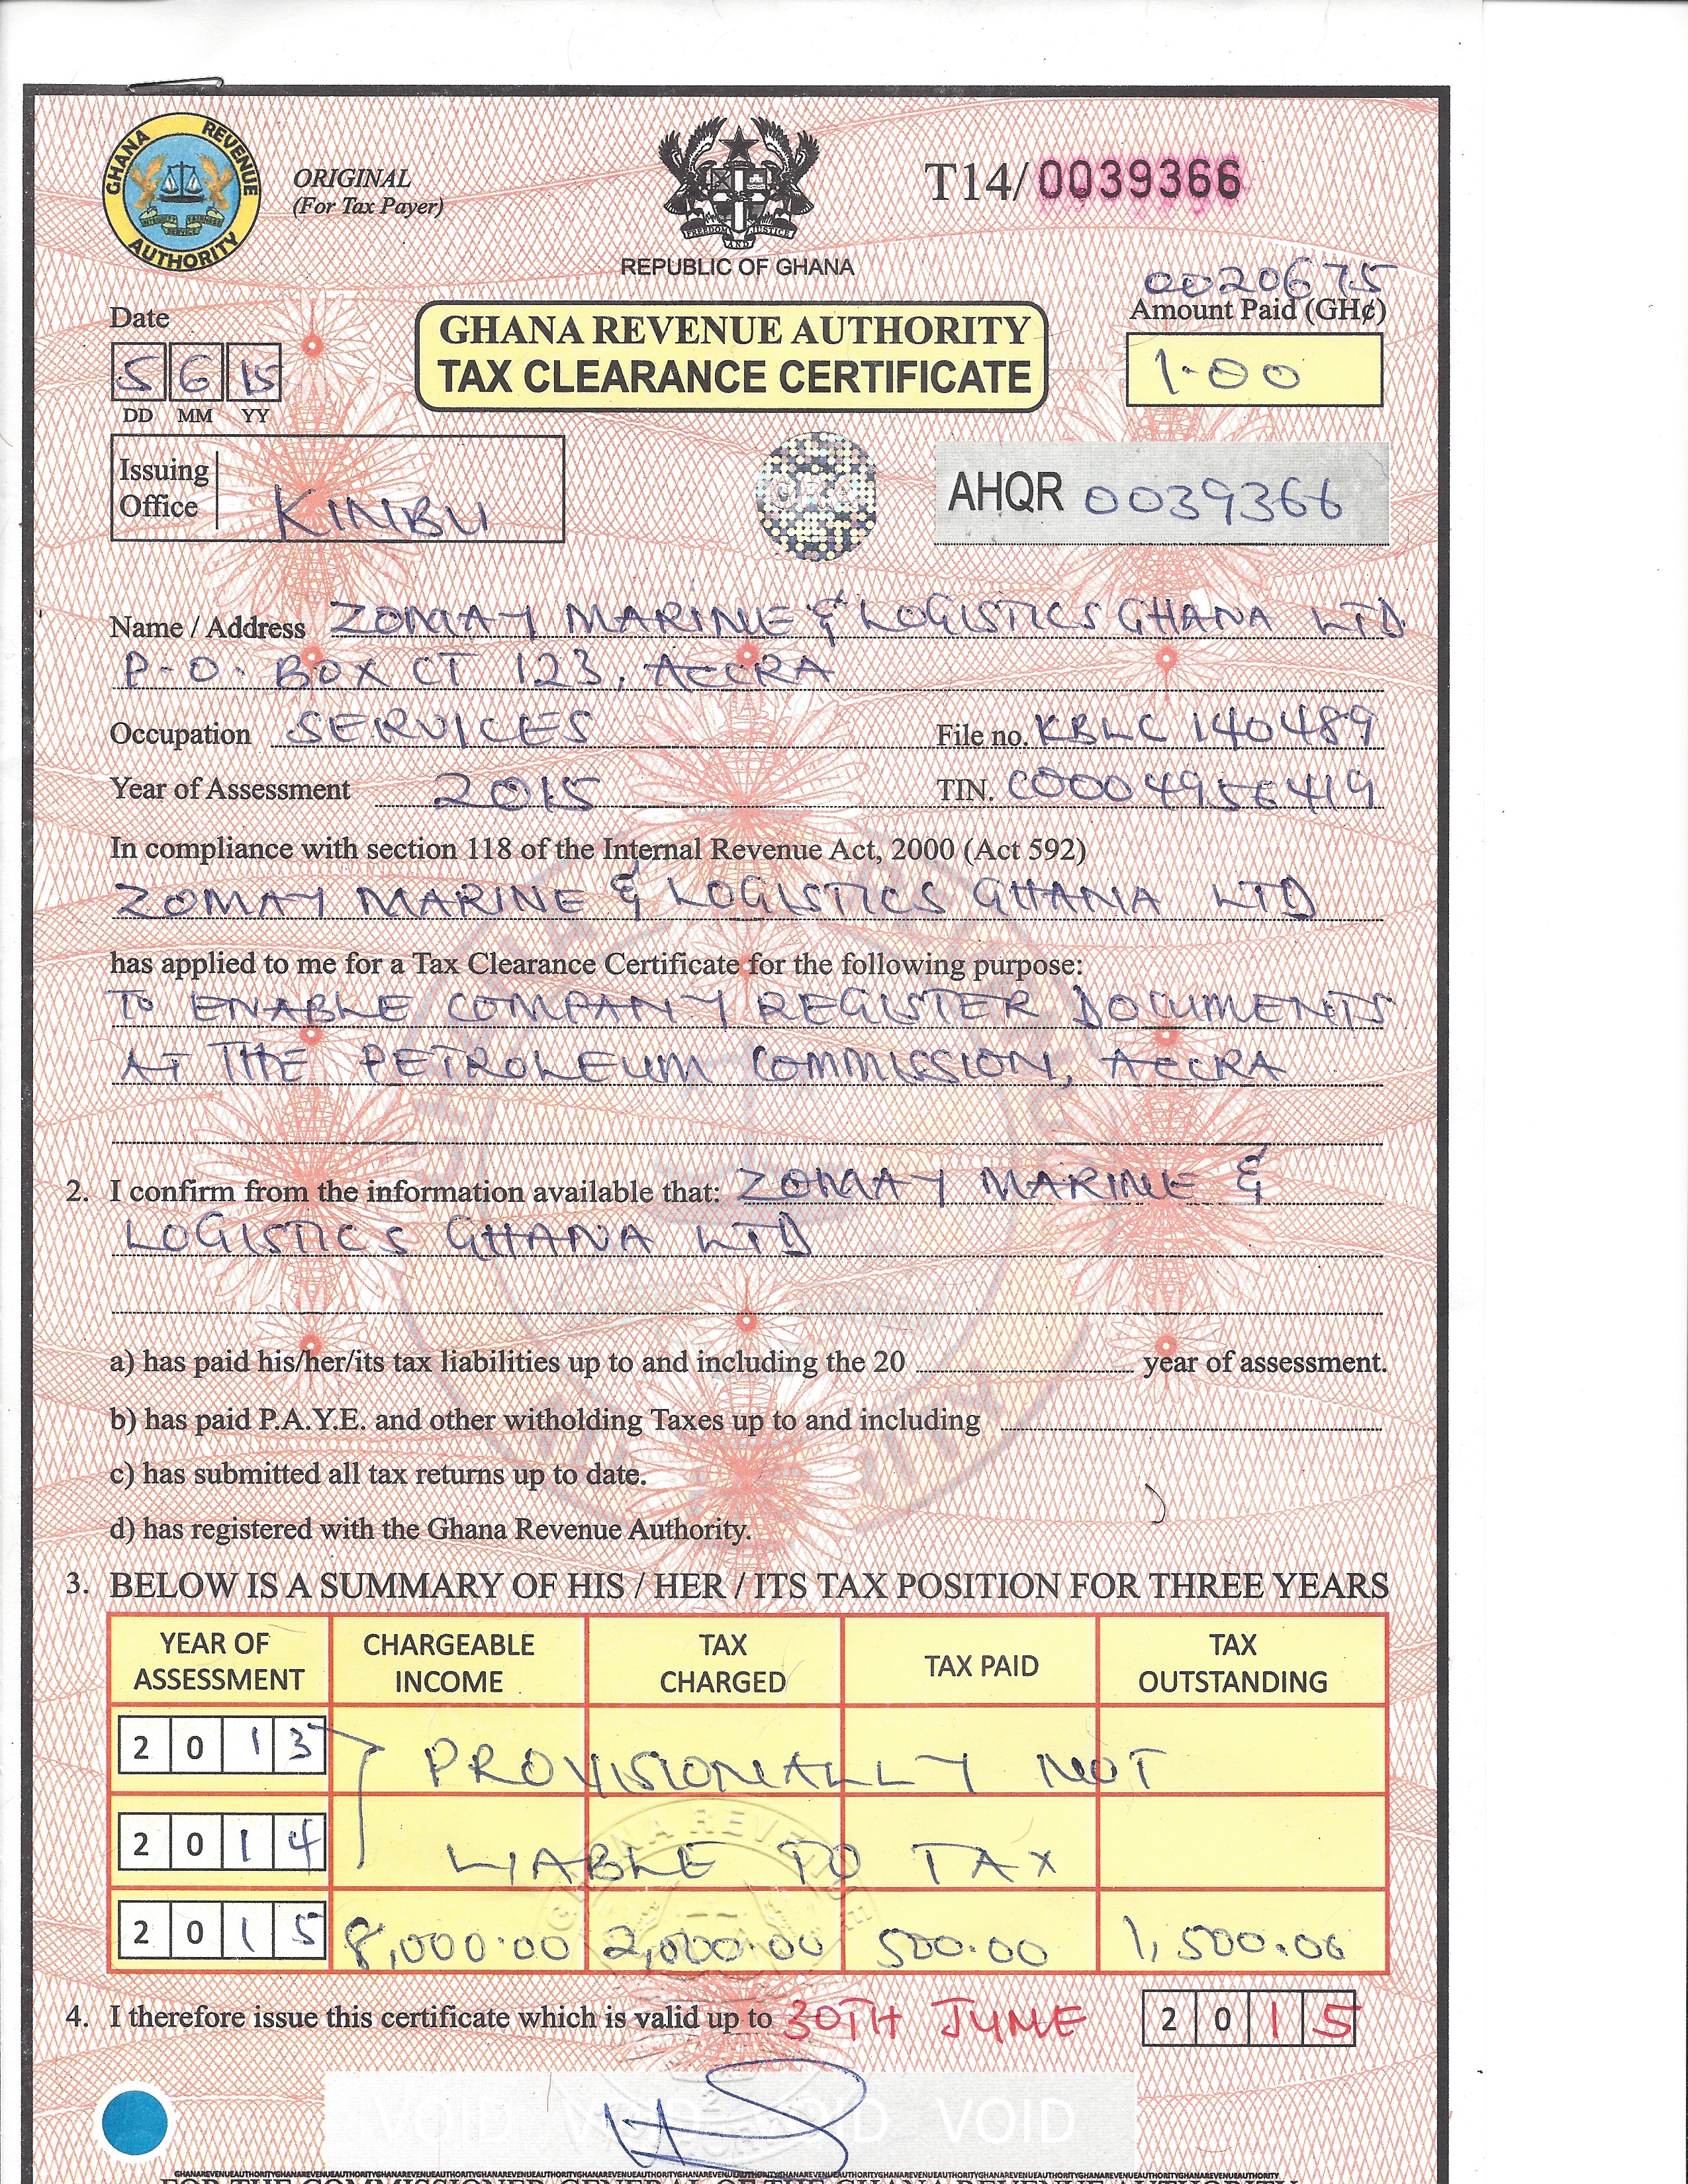 GHANA REVENUE AUTHORITY
INTEGRITY FAIRNESS
SERVICE
ORIGINAL
(For Tax Payer)
FREEDOM AND JUSTICE
REPUBLIC OF GHANA
T14/0039366
0020675
Date
5 6 15
DD MM YY
GHANA REVENUE AUTHORITY
TAX CLEARANCE CERTIFICATE
Amount Paid (GH¢)
1-00
Issuing
Office KINBU
GRA
AHQR 0039366
Name / Address ZOMAY MARINE & LOGISTICS GHANA LTD
P.O. BOX CT 123, ACCRA
Occupation SERVICES File no. KBLC 140489
Year of Assessment 2015 TIN. C0004956419
In compliance with section 118 of the Internal Revenue Act, 2000 (Act 592)
ZOMAY MARINE & LOGISTICS GHANA LTD
has applied to me for a Tax Clearance Certificate for the following purpose:
TO ENABLE COMPANY REGISTER DOCUMENTS
AT THE PETROLEUM COMMISSION, ACCRA
2. I confirm from the information available that: ZOMAY MARINE &
LOGISTICS GHANA LTD
a) has paid his/her/its tax liabilities up to and including the 20 year of assessment.
b) has paid P.A.Y.E. and other witholding Taxes up to and including
c) has submitted all tax returns up to date.
d) has registered with the Ghana Revenue Authority.
3. BELOW IS A SUMMARY OF HIS / HER / ITS TAX POSITION FOR THREE YEARS
YEAR OF ASSESSMENT CHARGEABLE INCOME TAX CHARGED TAX PAID TAX OUTSTANDING
2013 PROVISIONALLY NOT
2014 LIABLE TO TAX
2015 8,000.00 2,000.00 500.00 1,500.00
4. I therefore issue this certificate which is valid up to 30TH JUNE 2015
VOID VOID VOID VOID
GHANAREVENUEAUTHORITYGHANAREVENUEAUTHORITYGHANAREVENUEAUTHORITYGHANAREVENUEAUTHORITYGHANAREVENUEAUTHORITY
FOR THE COMMISSIONER GENERAL OF THE GHANA REVENUE AUTHORITY